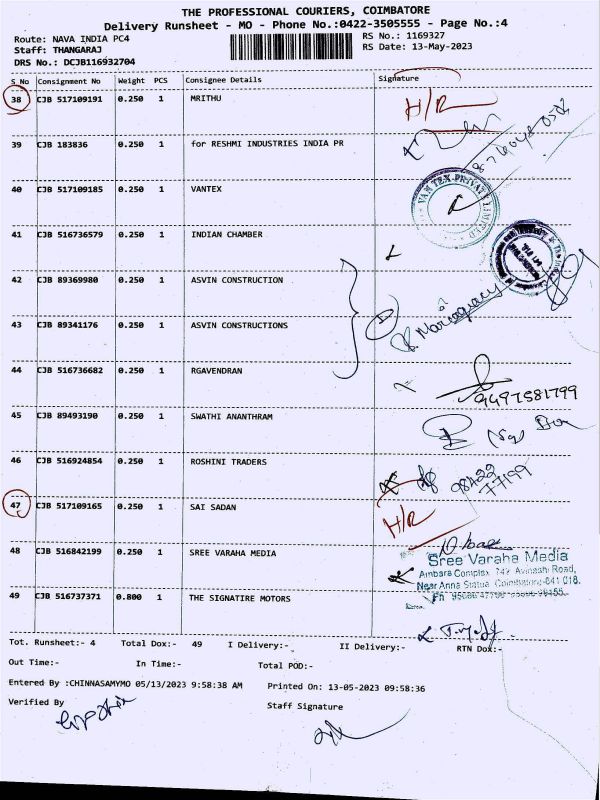 THE PROFESSIONAL COURIERS, COIMBATORE
Delivery Runsheet - MO - Phone No.:0422-3505555 - Page No.:4
Route: NAVA INDIA PC4 RS No.: 1169327
Staff: THANGARAJ RS Date: 13-May-2023
DRS No.: DCJB116932704
S No Consignment No Weight PCS Consignee Details Signature
38 CJB 517109191 0.250 1 MRITHU H/R
39 CJB 183836 0.250 1 for RESHMI INDUSTRIES INDIA PR
40 CJB 517109185 0.250 1 VANTEX
VAN TEX PRIVATE LIMITED
41 CJB 516736579 0.250 1 INDIAN CHAMBER
42 CJB 89369980 0.250 1 ASVIN CONSTRUCTION
43 CJB 89341176 0.250 1 ASVIN CONSTRUCTIONS
44 CJB 516736682 0.250 1 RGAVENDRAN
9497581799
45 CJB 89493190 0.250 1 SWATHI ANANTHRAM
46 CJB 516924854 0.250 1 ROSHINI TRADERS
98422
77199
47 CJB 517109165 0.250 1 SAI SADAN H/R
48 CJB 516842199 0.250 1 SREE VARAHA MEDIA
Sree Varaha Media
Ambara Complex, 742, Avinashi Road,
Near Anna Statue, Coimbatore-641 018.
49 CJB 516737371 0.800 1 THE SIGNATIRE MOTORS
Tot. Runsheet:- 4 Total Dox:- 49 I Delivery:- II Delivery:- RTN Dox:-
Out Time:- In Time:- Total POD:-
Entered By :CHINNASAMYMO 05/13/2023 9:58:38 AM Printed On: 13-05-2023 09:58:36
Verified By Staff Signature